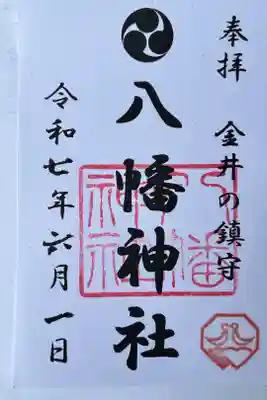 奉拝 金井の鎮守
八幡神社
八幡神社
令和七年六月一日